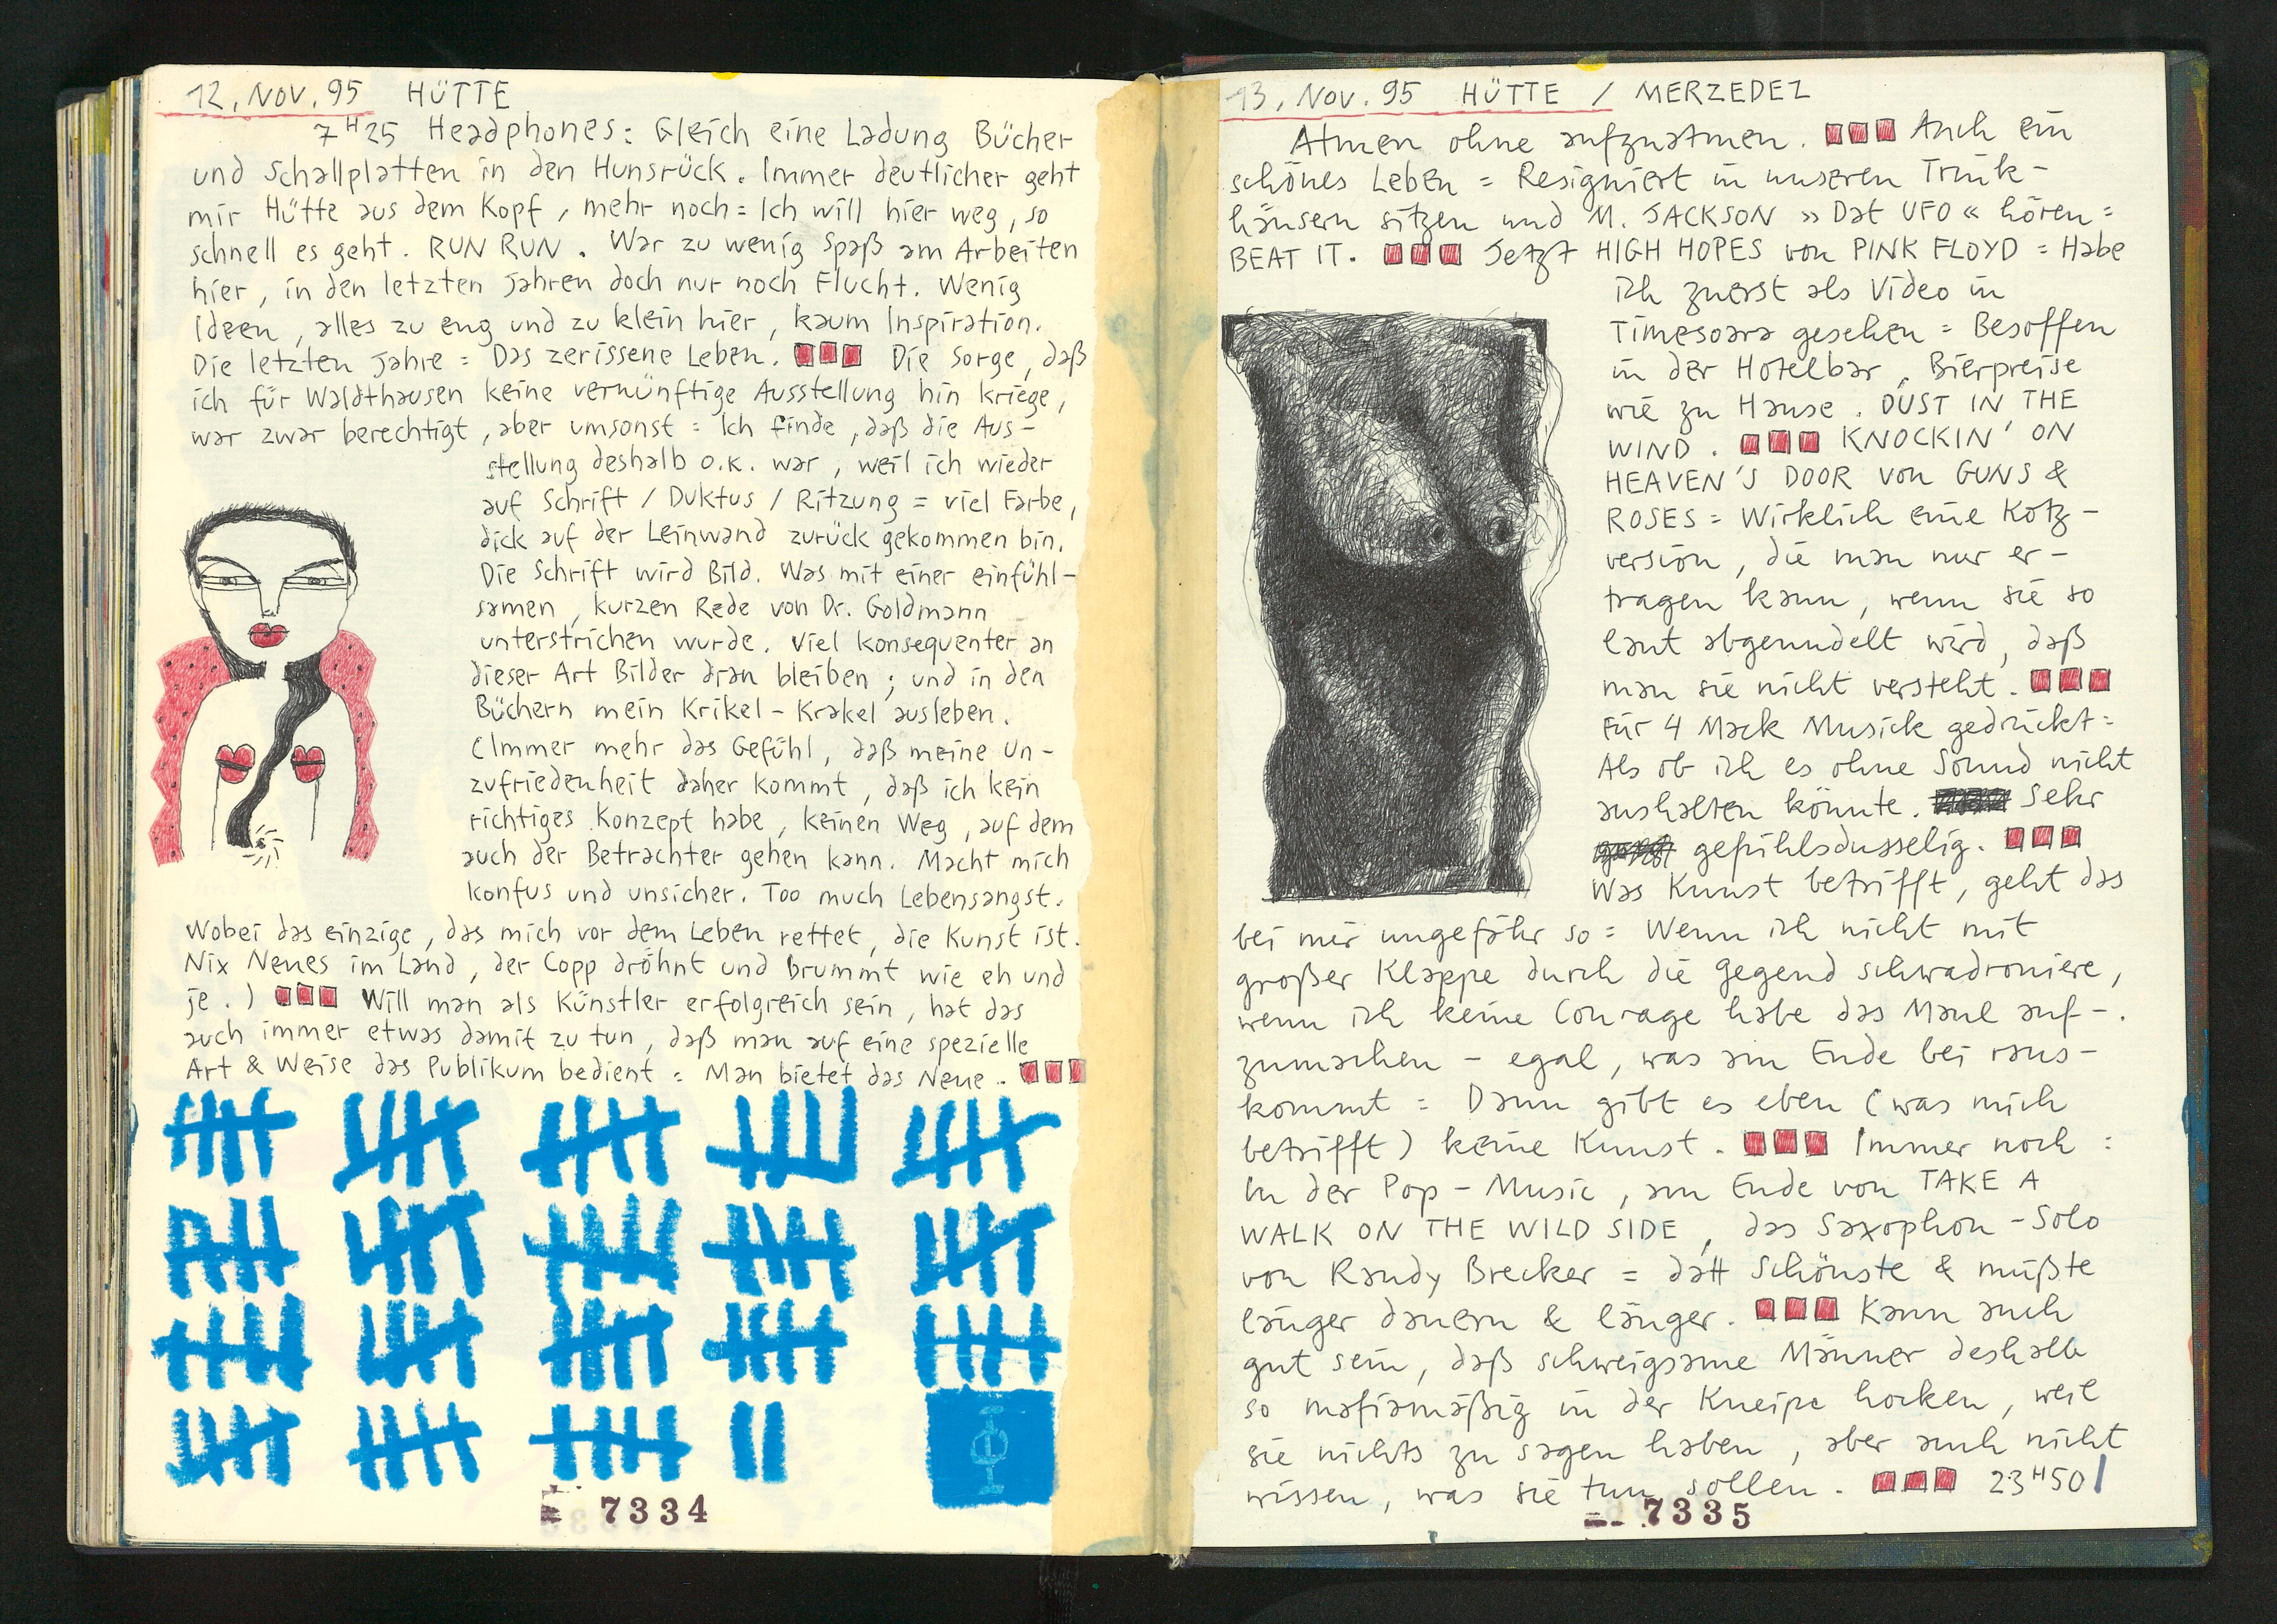 12. NOV. 95 HÜTTE
7H25 Headphones: Gleich eine Ladung Bücher
und Schallplatten in den Hunsrück. Immer deutlicher geht
mir Hütte aus dem Kopf, mehr noch = Ich will hier weg, so
schnell es geht. RUN RUN. War zu wenig Spaß am Arbeiten
hier, in den letzten Jahren doch nur noch Flucht. Wenig
Ideen, alles zu eng und zu klein hier, kaum Inspiration.
Die letzten Jahre = Das zerissene Leben. Die Sorge, daß
ich für Waldthausen keine vernünftige Ausstellung hin kriege,
war zwar berechtigt, aber umsonst = Ich finde, daß die Aus-
stellung deshalb o.k. war, weil ich wieder
auf Schrift / Duktus / Ritzung = viel Farbe,
dick auf der Leinwand zurück gekommen bin.
Die Schrift wird Bild. Was mit einer einfühl-
samen, kurzen Rede von Dr. Goldmann
unterstrichen wurde. Viel konsequenter an
dieser Art Bilder dran bleiben; und in den
Büchern mein Krikel-Krakel ausleben.
(Immer mehr das Gefühl, daß meine Un-
zufriedenheit daher kommt, daß ich kein
richtiges Konzept habe, keinen Weg, auf dem
auch der Betrachter gehen kann. Macht mich
konfus und unsicher. Too much Lebensangst.
Wobei das einzige, das mich vor dem Leben rettet, die Kunst ist.
Nix Neues im Land, der Copp dröhnt und brummt wie eh und
je.) Will man als Künstler erfolgreich sein, hat das
auch immer etwas damit zu tun, daß man auf eine spezielle
Art & Weise das Publikum bedient = Man bietet das Neue.
7334
13. Nov. 95 HÜTTE / MERZEDEZ
Atmen ohne aufzuatmen. Auch ein
schönes Leben = Resigniert in unseren Trink-
häusern sitzen und M. JACKSON »Dat UFO« hören =
BEAT IT. Jetzt HIGH HOPES von PINK FLOYD = Habe
ich zuerst als Video in
Timesoara gesehen = Besoffen
in der Hotelbar, Bierpreise
wie zu Hause. DUST IN THE
WIND. KNOCKIN' ON
HEAVEN'S DOOR von GUNS &
ROSES = Wirklich eine Kotz-
version, die man nur er-
tragen kann, wenn sie so
laut abgenudelt wird, daß
man sie nicht versteht.
Für 4 Mack Musick gedrückt =
Als ob ich es ohne Sound nicht
aushalten könnte. Sehr
gefühlsdusselig.
Was Kunst betrifft, geht das
bei mir ungefähr so = Wenn ich nicht mit
großer Klappe durch die Gegend schwadroniere,
wenn ich keine Courage habe das Maul auf-.
zumachen - egal, was am Ende bei raus-
kommt = Dann gibt es eben (was mich
betrifft) keine Kunst. Immer noch =
In der Pop-Music, am Ende von TAKE A
WALK ON THE WILD SIDE, das Saxophon-Solo
von Randy Brecker = datt Schönste & müßte
länger dauern & länger. Kann auch
gut sein, daß schweigsame Männer deshalb
so mafiamäßig in der Kneipe hocken, weil
sie nichts zu sagen haben, aber auch nicht
wissen, was sie tun sollen. 23H50
7335